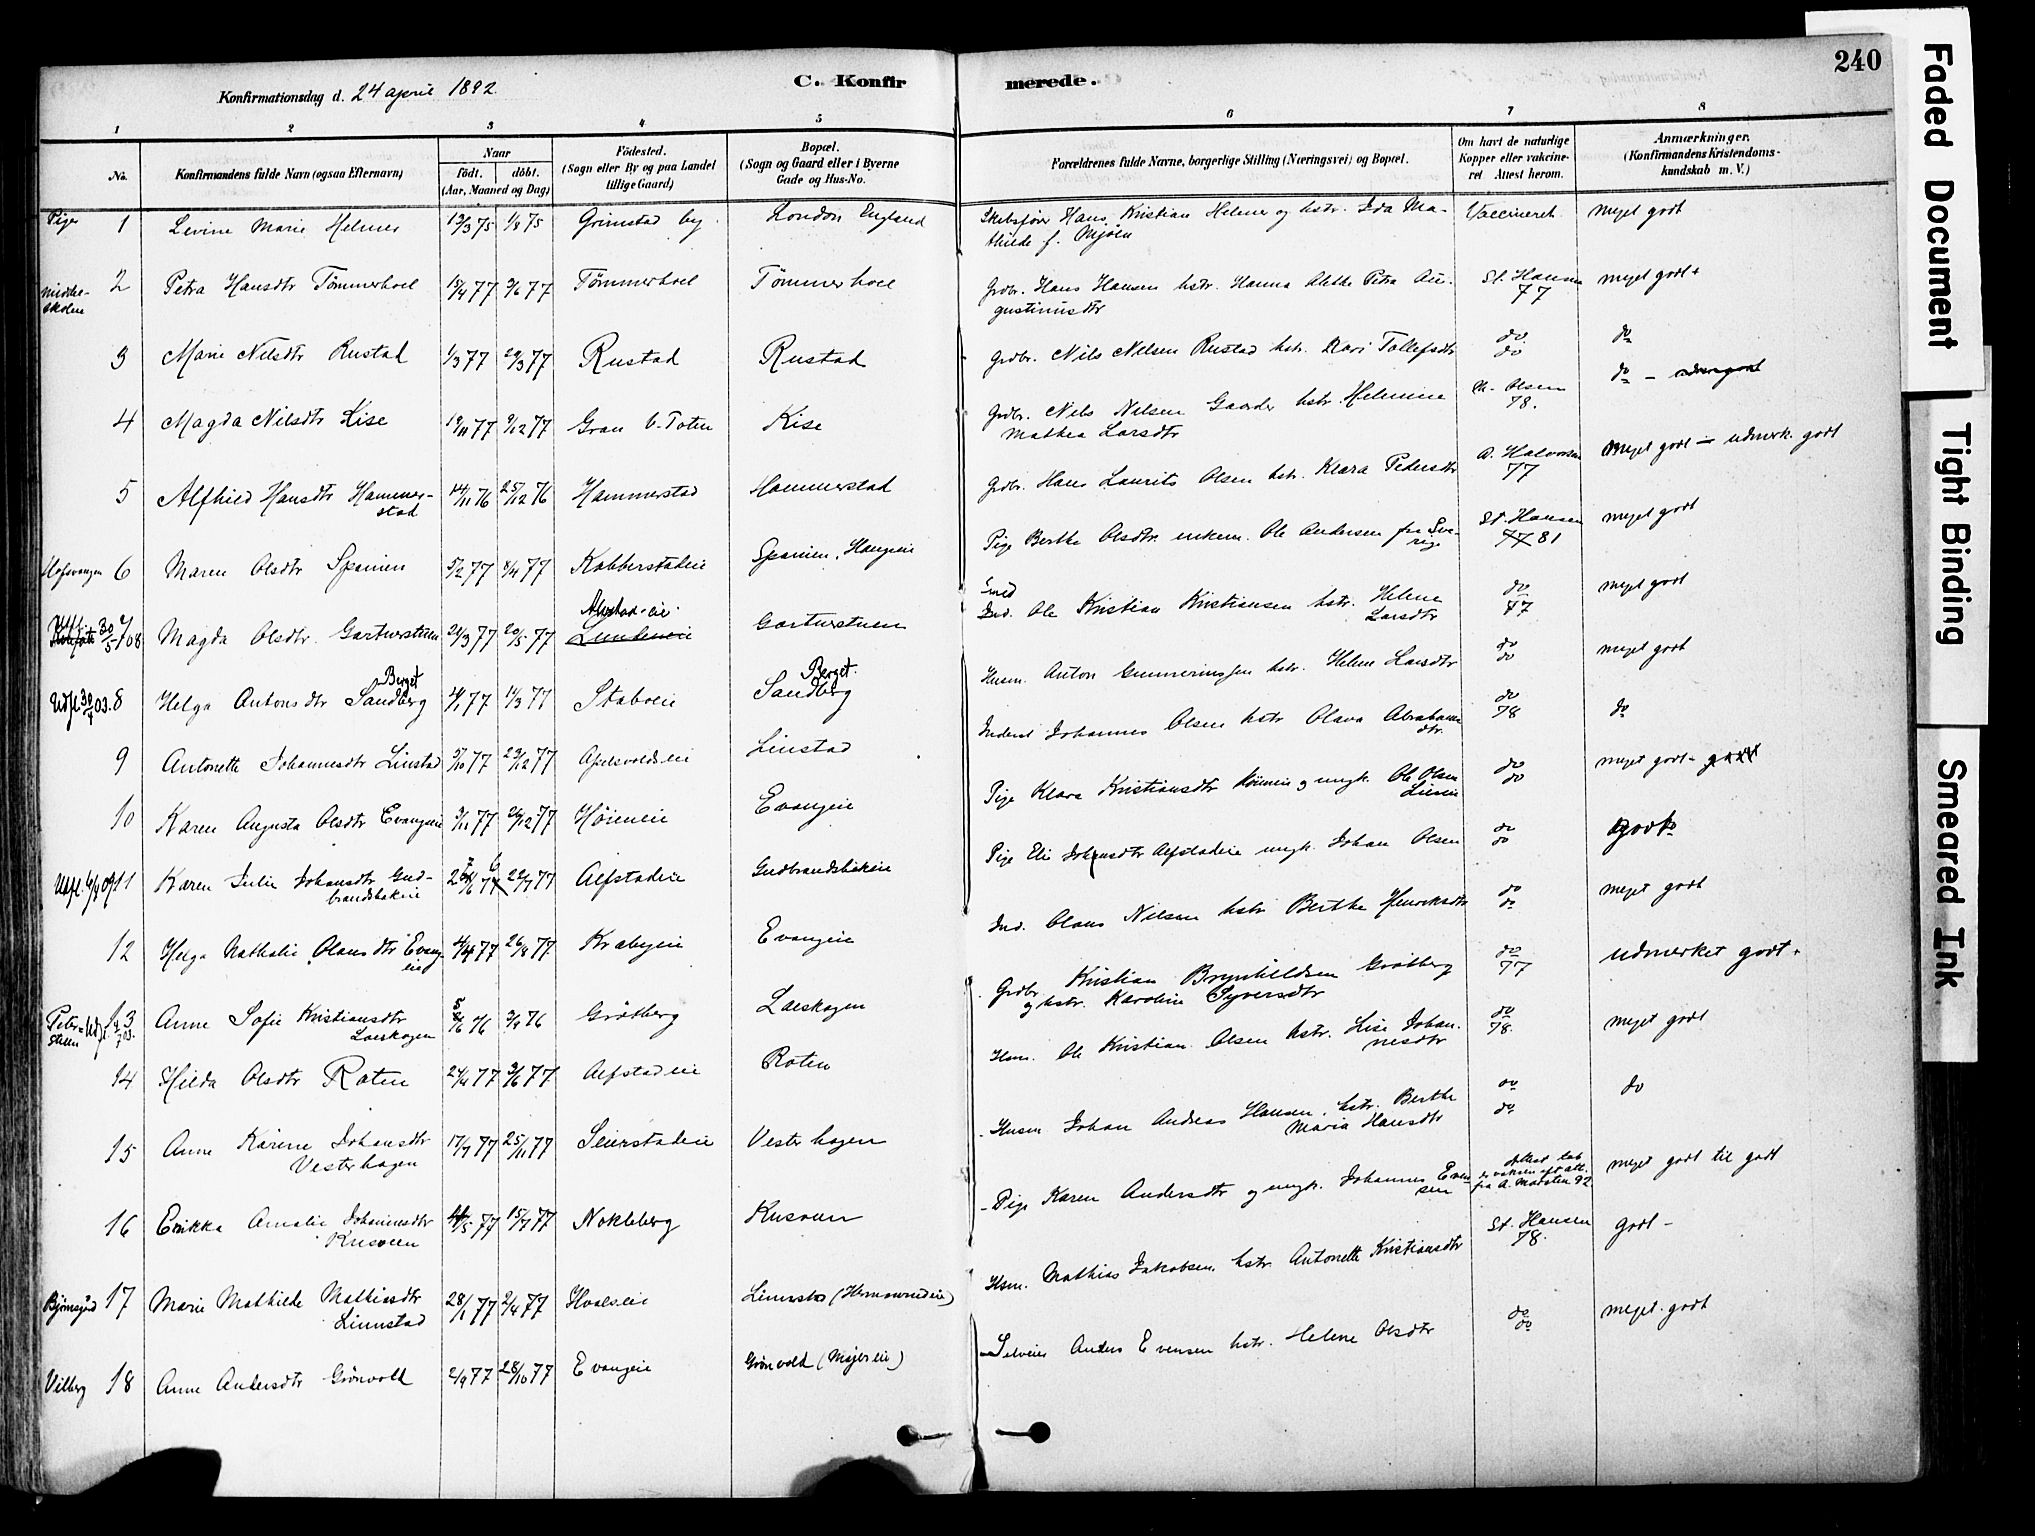 240
Konfirmationsdag d. 24 april 1892.
C. Konfirmerede.
1 2 3 4 5 6 7 8
No.
Konfirmandens fulde Navn (ogsaa Efternavn)
Naar
födt. döbt.
(Aar, Maaned og Dag)
Födested.
(Sogn eller By og paa Landet
tillige Gaard)
Bopæl.
(Sogn og Gaard eller i Byerne
Gade og Hus-No.
Forældrenes fulde Navne, borgerlige Stilling (Næringsvei) og Bopæl.
Om havt de naturlige
Kopper eller vakcine-
ret Attest herom.
Anmærkninger.
(Konfirmandens Kristendoms-
kundskab m. V.)
Piger 1 Levine Marie Helmer 75 75 Grimstad by. London England Skibsfører Hans Kristian Helmer og hstr. Ida Ma- Vaccineret meget godt
thilde f. Mjöen
Middel-
skolen
2 Petra Hansdtr Tømmerhoel 15/4 77 3/6 77 Tømmerhoel Tømmerhoel Grdbr. Hans Hansen hstr. Hanna Alethe Petra Au- St. Hansen meget godt
gustinusdtr 77
3 Marie Nilsdtr Rustad 1/3 77 29/3 77 Rustad Rustad Grdbr. Nils Nilsen Rustad hstr. Kari Tollefsdtr do do
do
4 Magda Nilsdtr Kise 19/11 77 9/12 77 Gran V. Toten Kise Grdbr. Nils Nilsen Gaarder hstr. Helmine Olsen do -
Mathea Larsdtr 78.
5 Alfhild Hansdtr Hammer- 14/11 76 25/12 76 Hammerstad Hammerstad Grdbr. Hans Laurits Olsen hstr. Klara Pedersdtr A. Halvorsen meget godt - udmerk. godt
stad 77
6 Maren Olsdtr Spanien 5/2 77 4/4 77 Kabberstadeie Spanien, Haugeie Pige Berthe Olsdtr. enkem. Ole Andersen fra Sve- St. Hansen meget godt
rige 77 81
30/5 08 7 Magda Olsdtr. Garturstuen 21/3 77 20/5 77 Lundeneie Garturstuen Smed
Ind. Ole Kristian Kristiansen hstr. Helene do meget godt
Larsdtr 77
Udfl. 30/4 03. 8 Helga Antonsdtr Sandberg 4/1 77 11/3 77 Stabeie Sandberg Husm. Anton Gunneriussen hstr. Helene Larsdtr do meget godt
Berget Berget. do
9 Antonette Johannesdtr Linstad 5/10 77 29/12 77 Apelsvoldseie Linstad Inderst Johannes Olsen hstr Olava Abrahams- do do
dtr. 78
10 Karen Augusta Olsdtr Evangeie 3/11 77 26/12 77 Høieneie Evangeie Pige Klara Kristiansdtr og ungk. Ole Olsen do meget godt - godt
do
11 Karen Julie Johansdtr Gud- 77 22/7 77 Alfstadeie Gudbrandsbakeie Pige Eli Alfstadeie ungk. Johan Olsen do godt
brandsbakeie do
12 Helga Nathalie Olausdtr Evang- 77 26/8 77 Krabyeie Evangeie Ind. Olaus Nilsen hstr Berthe Henriksdtr do meget godt
eie do
Peter-
stuen
Udfl. 03. 13 Anne Sofie Kristiansdtr 76 3/9 76 Grötberg Laeskogen Grdbr Kristian Brynhildsen Grötberg do udmerket godt
Laeskogen og hstr. Karoline Syversdtr 77
14 Hilda Olsdtr Roten 24/4 77 3/6 77 Alfstadeie Roten Hsm. Ole Kristian Olsen hstr. Lise Johan- do meget godt
nesdtr 78.
15 Anne Karine Johansdtr 17/7 77 25/11 77 Seierstadeie Vesterhagen Husm Johan Andreas Hansen. hstr. Berthe do do
Vesterhagen Maria Hansdtr do
16 Erikka Amalie Johannesdtr 77 15/7 77 Nokleberg Krusveen Pige Karen Andersdtr og ungk. Johannes Even- Attest tab meget godt til godt
Krusveen sen
17 Marie Mathilde Mathiasdtr 28/1 77 2/4 77 Hvalseie Linnstad Hsm. Mathias Jakobsen. hstr. Antonette Kristiansdtr St. Hansen godt -
Linnstad 78.
Vilberg 18 Anne Andersdtr Grönvold 2/9 77 28/10 77 Evangeie Grönvold Selveier Anders Evensen hstr. Helene Olsdtr do meget godt
do
Faded Document
Tight Binding
Smeared Ink